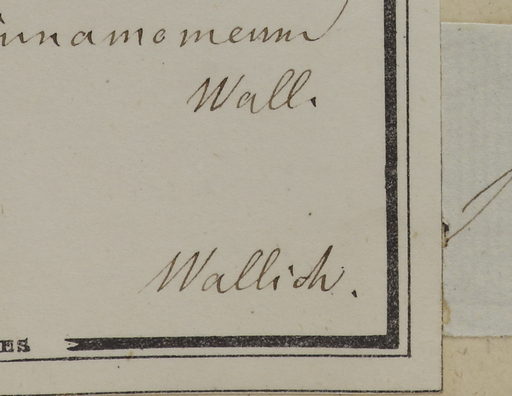 innamomeum
Wall.
Wallich.
ES